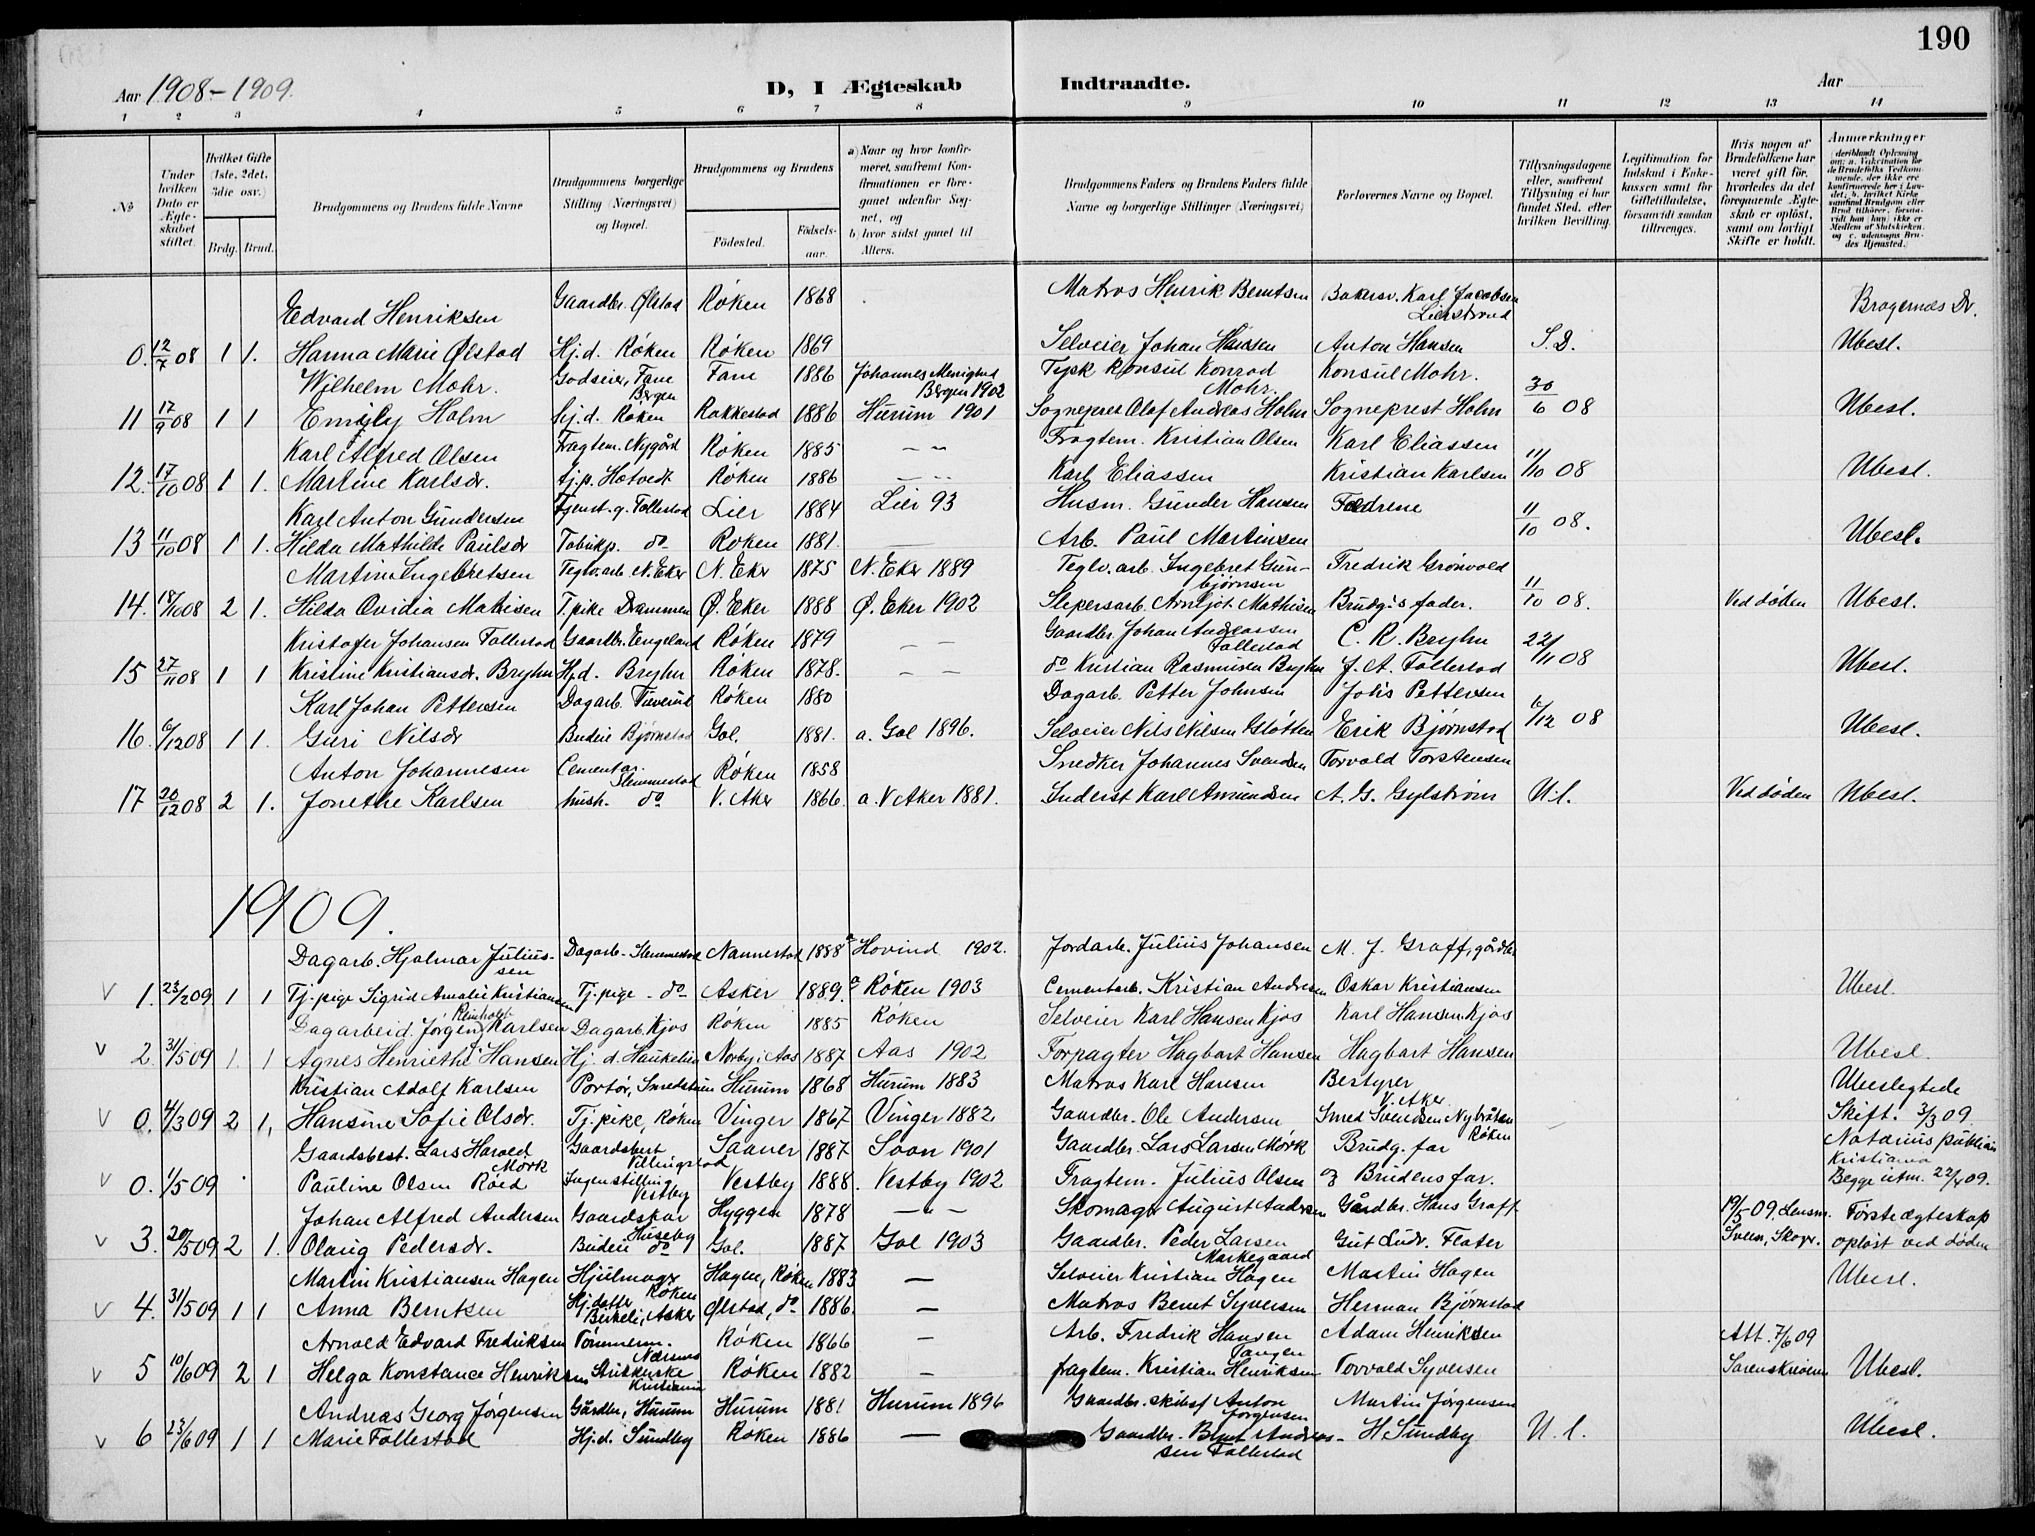 190
Aar 1908–1909. D, I Ægteskab Indtraadte. Aar
1 2 3 4 5 6 7 8 9 10 11 12 13 14
№
Under hvilken Dato er Ægteskabet stiftet.
Hvilket Gifte (1ste, 2det, 3die osv.)
Brdg. Brud.
Brudgommens og Brudens fulde Navne
Brudgommens borgerlige Stilling (Næringsvei) og Bopæl.
Brudgommens og Brudens
Fødested. Fødselsaar.
a) Naar og hvor konfirmeret, saafremt Konfirmationen er foregaaet udenfor Sognet, og
b) hvor sidst gaaet til Alters.
Brudgommens Faders og Brudens Faders fulde Navne og borgerlige Stillinger (Næringsvei)
Forlovernes Navne og Bopæl.
Tillysningsdagene eller, saafremt Tillysning ei har fundet Sted, efter hvilken Bevilling.
Legitimation for Indskud i Enkekassen samt for Giftetilladelse, forsaavidt saadan tiltrænges.
Hvis nogen af Brudefolkene har været gift før, hvorledes da det foregaaende Ægteskab er opløst, samt om lovligt Skifte er holdt.
Anmerkninger
Edvard Henriksen Gaardbr. Ølstad Røken 1868 Matros Henrik Berntsen Bakersv. Karl Jacobsen Lierstrand Bragernæs Dr.
0. 12/7 08 1 1. Hanna Marie Ølstad Hj.d. Røken Røken 1869 Selveier Johan Hansen Anton Hansen S.D. Ubesl.
Wilhelm Mohr. Godseier, Fane Bergen Fane 1886 Johannes Menighed Bergen 1902 Tysk Konsul Konrad Mohr. Konsul Mohr.
11 17/9 08 1 1 Emily Holm Hj.d. Røken Rakkestad 1886 Hurum 1901 Sogneprest Olaf Andreas Holm Sogneprest Holm 30/6 08 Ubesl.
Karl Alfred Olsen Fragtem. Nygård Røken 1885 — — Fragtem. Kristian Olsen Karl Eliassen
12. 17/10 08 1 1. Martine Karlsdr. Tj.p. Hotvedt Røken 1886 Karl Eliassen Kristian Karlsen 11/10 08 Ubesl.
Karl Anton Gundersen Tjenst.g. Follestad Lier 1884 Lier 93 Husm. Gunder Hansen Fædrene
13 11/10 08 1 1. Hilda Mathilde Paulsdr Fabrikp. do Røken 1881. — Arb. Paul Martinsen 11/10 08. Ubesl.
Martin Ingebretsen Teglv.arb. N. Eker N. Eker 1875 N. Eker 1889 Teglv. arb. Ingebret Gunbjørnsen Fredrik Grønvold
14. 18/10 08 2 1. Hilda Ovidia Mathisen T.pike Drammen Ø. Eker 1888 Ø. Eker 1902 Slipersarb. Arnljot Mathisen Brudg's fader. 11/10 08. Ved døden Ubesl.
Kristofer Johansen Follestad Gaardbr. Engeland Røken 1879 — Gaardbr. Johan Andreassen Follestad C. R. Bryhn
15 27/11 08 1 1 Kristine Kristiansdr. Bryhn Hj.d. Bryhn Røken 1878. — — do Kristian Rasmussen Bryhn J. A. Follestad 22/11 08 Ubesl.
Karl Johan Pettersen Dagarb. Røken 1880 Dagarb. Petter Johnsen Johs Pettersen
16. 6/12 08 1 1. Guri Nilsdr Budeie Bjørnstad Gol. 1881. a. Gol 1896. Selveier Nils Nilsen Erik Bjørnstad 6/12 08 Ubesl.
Anton Johannesen Cementar. Slemmestad Røken 1858 Snedker Johannes Svendsen Torvald Torstensen
17 20/12 08 2 1. Jonethe Karlsen hush. do V. Aker 1866. a. V Aker 1881. Inderst Karl Amundsen A. G. Gylstrøm U.l. Ved døden Ubesl.
1909.
Dagarb. Hjalmar Juliussen Dagarb. Slemmestad Nannestad 1888 a Hovind 1902. Jordarb. Julius Johansen M. J. Graff, gårdbr
v 1. 23/2 09 1 1 Tj.pige Sigrid Amalie Kristiansen Tj.pige - do Asker 1889. a Røken 1903 Cementarb. Kristian Andresen Oskar Kristiansen Ubesl.
Dagarbeid. Jørgen Reinholdt Karlsen Dagarb. Kjos Røken 1885 Røken Selveier Karl Hansen Kjos Karl Hansen Kjos
v 2. 31/5 09 1. 1 Agnes Henriethe Hansen Hj.d. Haukelien Norby i Aas 1887 Aas 1902 Forpagter Hagbart Hansen Hagbart Hansen Ubesl.
Kristian Adolf Karlsen Portør, Hurum 1868 Hurum 1883 Matros Karl Hansen Bestyrer V. Aker Ubeslegtede
v 0. 4/3 09 2 1, Hansine Sofie Olsdr. Tj.pike, Røken Vinger 1867 Vinger 1882 Gaardbr. Ole Andersen Smed Svendsen Nybråten Røken Skift. 3/3 09.
Gaardsbest. Lars Harald Mørk Gaardsbest Saaner 1887 Soon 1901 Gaardbr. Lars Larsen Mørk Brudg. far Notarius publicus Kristiania
v 0. 1/5 09 Pauline Olsen Røed Ingen stilling Vestby Vestby 1888. Vestby 1902 Fragtem. Julius Olsen og Brudens far. Begge utm. 22/4 09.
Johan Alfred Andersen Gaardskar Huseby Hyggen 1878 — — Skomager August Andersen Gårdbr. Hans Graff 19/5 09. Lensm. Første ægteskap
v 3. 20/5 09 2 1. Olaug Pedersdr. Budeie do Gol. 1887 Gol 1903 Gaardbr. Peder Larsen Markegaard Gut Ludv. Flater opløst ved døden
Martin Kristiansen Hagen Hjulmager Røken Hagen, Røken 1883 — Selveier Kristian Hagen Martin Hagen Ubesl.
v 4. 31/5 09 1 1 Anna Berntsen Hj.datter Birkeli, Asker Ølstad, do 1886. — Matros Bernt Syversen Herman Bjørnstad
Arnold Edvard Fredriksen Tømmerm. Nærsnes Røken 1866 — Arb. Fredrik Hansen Tangen Adam Henriksen Att. 7/6 09
v 5 10/6 09 2 1 Helga Konstance Henriksen Kristiania Røken 1882 — fragtem. Kristian Henriksen Torvald Syversen Sorenskriveren Ubesl.
Andreas Georg Jørgensen Gårdbr, Hurum Hurum 1881 Hurum 1896 Gaardbr. skibsf Anton Jørgensen Martin Jørgensen
v 6 23/6 09 1 1 Marie Follestad Hj.d. Sundby Røken 1886 — Gaardbr. Bernt Andreassen Follestad H. Sundby U.l. Ubesl.